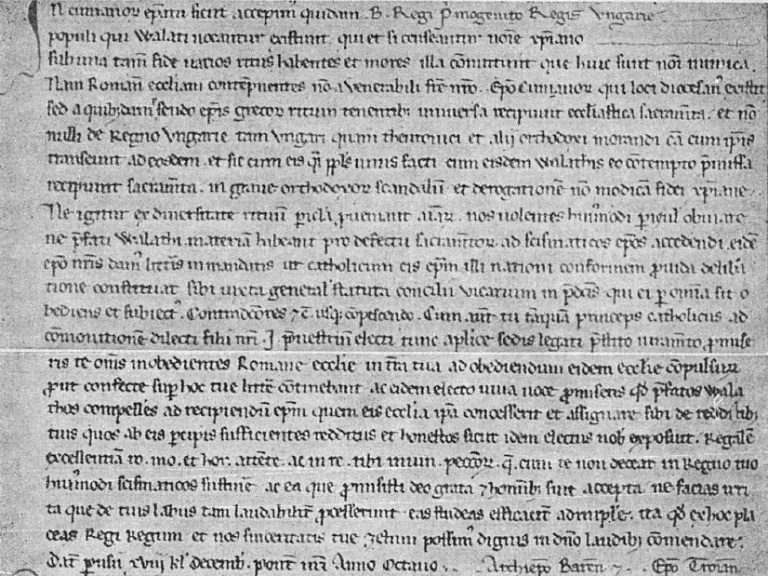 N cumanor ep̄atu sicut accepim̄ quidam . B . Regi p̄mogenito Regis Vngarie
populi qui Walati uocantur existunt . qui et si censeantur noīe xp̄iano
sub una tam̄ fide uarios ritus habentes et mores illa com̄ittunt que huic sunt noīi inimica .
Nam Roman̄ eccliam contēpnentes nō a Venerabili frē nr̄o . Ep̄o Cumanor qui loci diocesan̄ existit
sed a quibusdam pseudo ep̄is grecor ritum tenentibꝫ uniuersa recipiunt eccliastica sacram̄ta . et nō
nulli de Regno Vngarie tam Vngari quam theutonici et alij orthodoxi morandi cā cum ip̄is
transeunt ad eosdem . et sic cum eis qī ppl̄s unus facti cum eisdem Walathis eo contempto p̄missa
recipiunt sacram̄ta . in graue orthodoxor scandalū et derogationē nō modicā fidei xp̄iane .
Ne igitur ex diuersitate rituū pic̄la ꝓueniant aīar . nos uolentes huiꝰmodi picul̄ obuiare
ne p̄fati Walathi materiā habeant pro defectu sacram̄tor ad scismaticos ep̄os accedendi . eidē
ep̄o nr̄is dam̄ litt̄is in mandatis ut catholicum eis ep̄m illi nationi conformem prouida delib̄a
tione constituat sibi iuxta general̄ statuta concilii Vicarium in p̄dcīs qui ei p om̄ia sit o
bediens et subiectꝰ . Contradictores ⁊c̄ usqꝫ cōpescendo . Cum aūt tu tanquā princeps catholicus ad
cōmonitionē dilecti filii nr̄i . J . p̄nestrin̄ electi tunc aplīce sedis legati p̄stito iuram̄to ꝓmise
ris te om̄s inobedientes Romane ecclie in tr̄a tua ad obediendum eidem ecclie cōpulsur
ꝓut confecte suꝑ hoc tue litt̄e cōtinebant ac eidem electo uiua uoce ꝓmiseris qd̄ p̄fatos Wala
thos compelles ad recipiendū ep̄m quem eis ecclia ip̄a concesserit et assignare sibi de redditibꝫ
tuis quos ab eis pcipis sufficientes redditus et honestos sicut idem electus nob̄ exposuit . Regalē
excellentiā ro . mo . et hor . attēte . ac in re . tibi iniun . peccōr . q̄ . cum te non deceat in Regno tuo
huiꝰmodi scismaticos sustinē ac ea que ꝓmisisti deo grata ⁊ homībꝫ sint accepta ne facias irri
ta que de tuis labiis tam laudabilit̄ ꝓcesserunt eas studeas efficacit̄ adimplē . ita qd̄ ex hoc pla
ceas Regi Regum et nos sinceritatis tue zelum possim̄ dignis in dn̄o laudibꝫ cōmendare .
Dat̄ perusii xviij kl̄ decemb̄ . pont̄ nr̄i Anno Octauo . Archiep̄o Baren̄ ⁊ . Ep̄o Troian̄